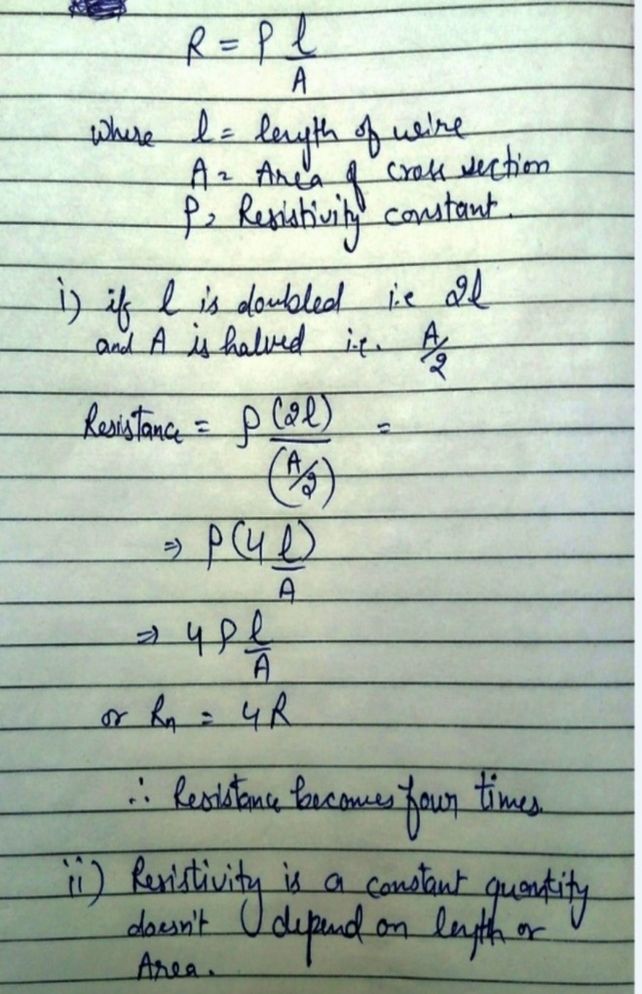 R = ρ l/A
where l = length of wire
A = Area of cross section
ρ = Resistivity constant.
i) if l is doubled i.e 2l
and A is halved i.e. A/2
Resistance = ρ (2l)/(A/2) =
⇒ ρ(4 l/A)
⇒ 4 ρ l/A
or Rn = 4R
∴ Resistance becomes four times.
ii) Resistivity is a constant quantity
doesn't depend on length or
Area.